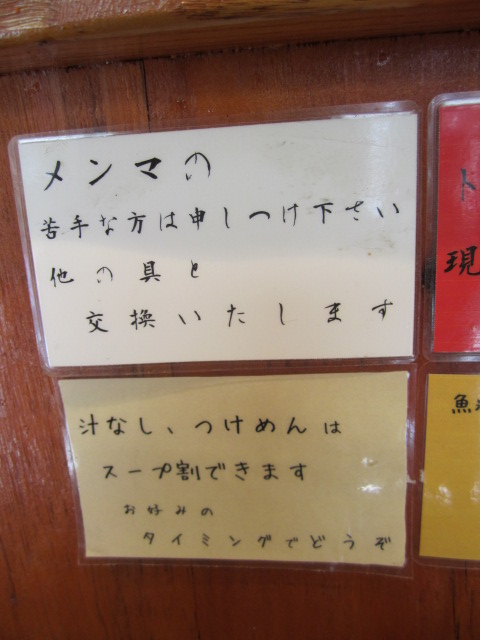 メンマの
苦手な方は申しつけ下さい
他の具と
交換いたします
汁なし、つけめんは
スープ割できます
お好みの
タイミングでどうぞ
ト
現
魚